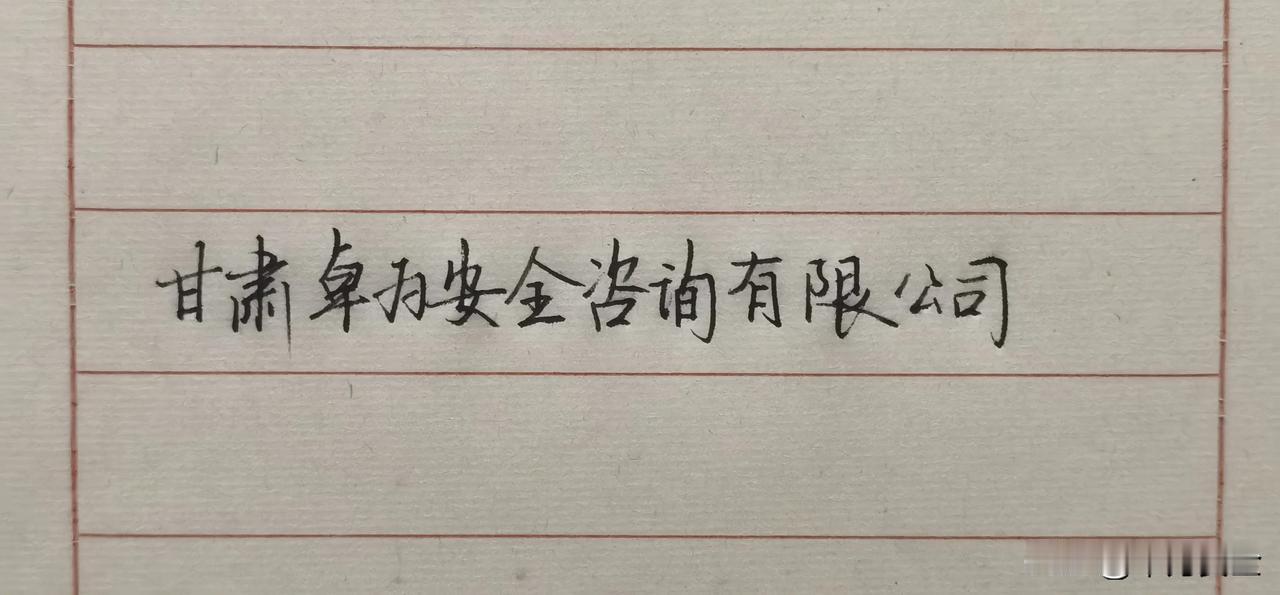 甘肃卓为安全咨询有限公司